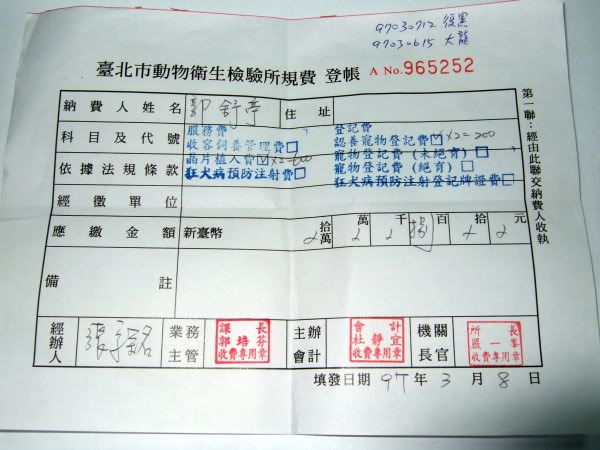 97030712 復黑
97030615 大龍
臺北市動物衛生檢驗所規費 登帳 A No.965252
納費人姓名 郭舒 住址
科目及代號
服務費
收容飼養管理費□
晶片植入費☑ x2=600
狂犬病預防注射費□
登記費
認養寵物登記費☑ x2=200
寵物登記費(未絕育)□
寵物登記費(絕育)□
狂犬病預防注射登記牌證費□
依據法規條款
經徵單位
應繳金額 新臺幣 拾萬 萬 千 捌 百 拾 元
備註
經辦人 業務主管 課長 郭培芬 收費專用章 主辦會計 會計 杜靜宜 收費專用章 機關長官 所長 嚴一峯 收費專用章
填發日期 97 年 3 月 8 日
第一聯：經由此聯交納費人收執